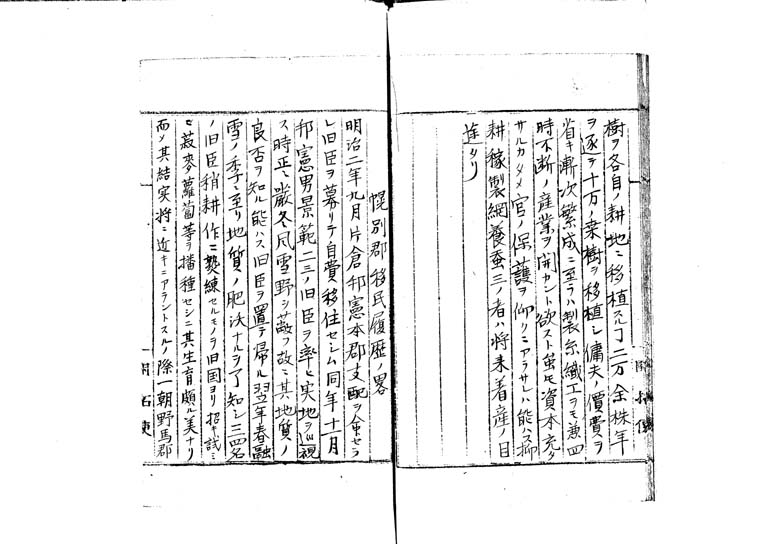 樹ヲ各自ノ耕地ニ移植スルヿ二万余株年
ヲ逐テ十万ノ桒樹ヲ移植シ傭夫ノ價費ヲ
省キ漸次繁成ニ至ラハ製糸織工ヲモ兼四
時不断ノ産業ヲ開カント欲スト虽モ資本充タ
サルカタメ官ノ保護ヲ仰クニアラサレハ能ハス抑
耕稼製網養蚕三ノ者ハ将来着産ノ目
途タリ
幌別郡移民履歴ノ畧
明治二年九月片倉邦憲本郡支配ヲ命セラ
レ旧臣ヲ募リテ自費移住セシム同年十月
邦憲男景範二三ノ旧臣ヲ率ヒ実地ヲ巡視
ス時正ニ嚴冬风雪野シ蔽フ故ニ其地質ノ
良否ヲ知ル能ハス旧臣ヲ置テ帰ル翌年春融
雪ノ季ニ至リ地質ノ肥沃ナルヲ了知シ三四名
ノ旧臣稍耕作ニ熟練セルモノヲ旧国ヨリ招キ試ニ
菽麥蘿蔔等ヲ播種セシニ其生育頗ル美ナリ
而メ其結実将ニ近キニアラントスルノ際一朝野馬郡
開拓使